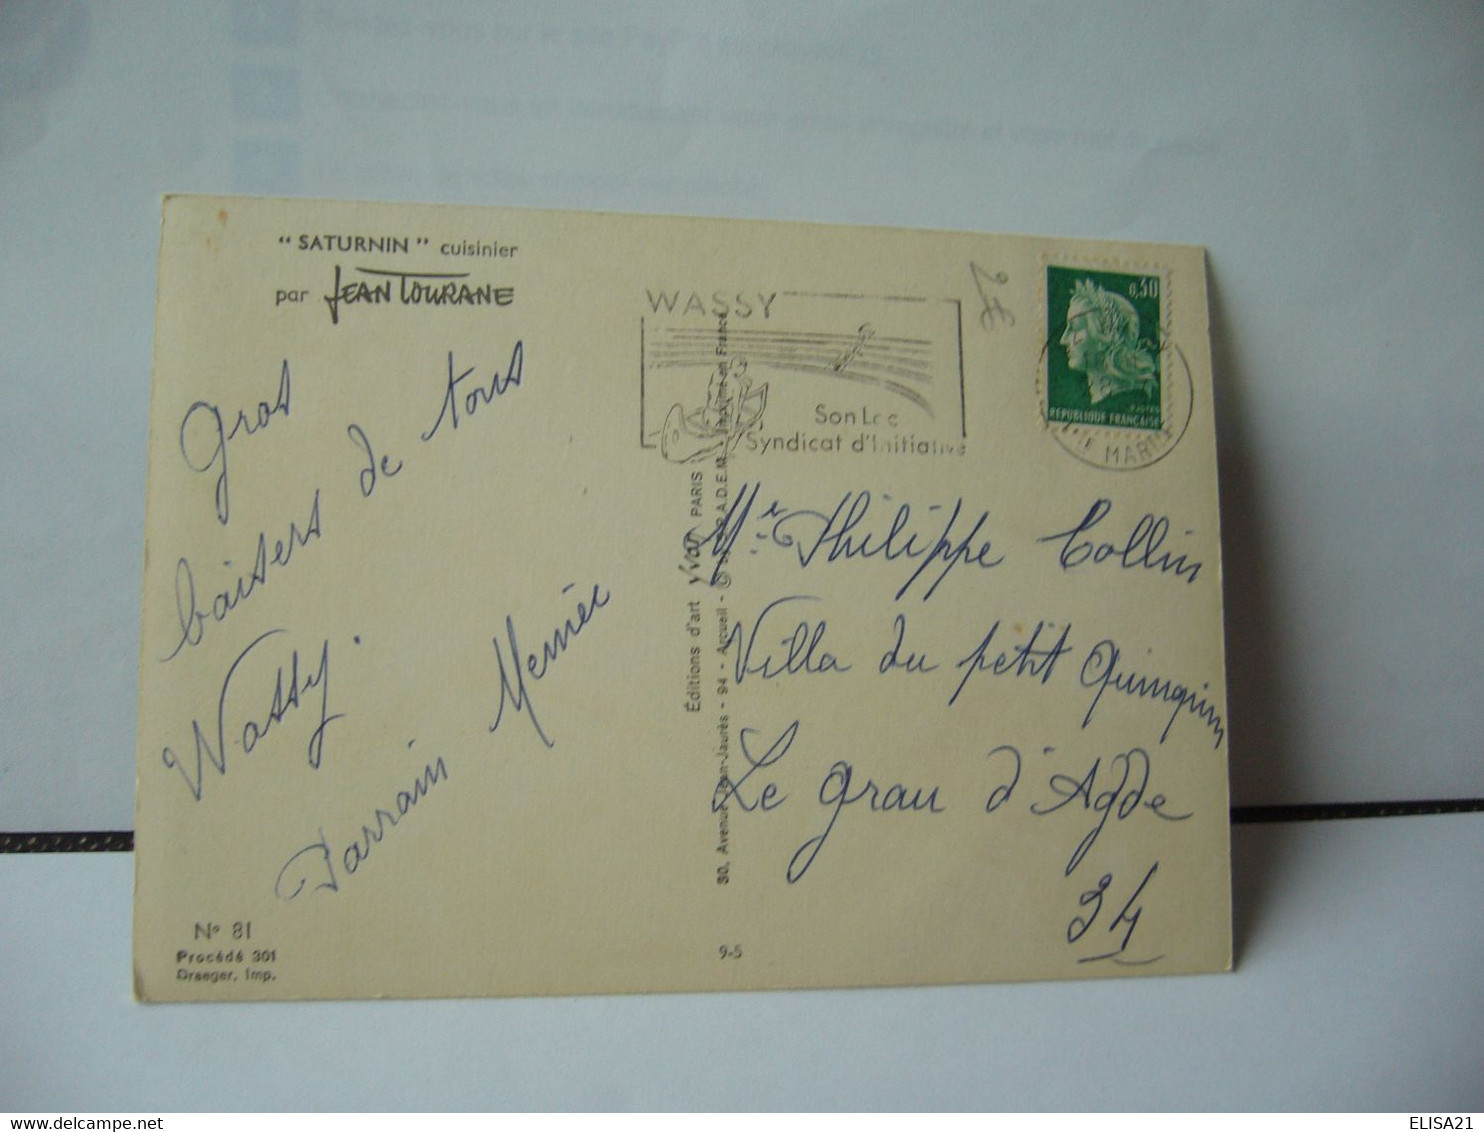 " SATURNIN " cuisinier
par JEAN TOURANE
Gros
baisers de tous
Wassy.
Parrain Memée
N° 81
Procédé 301
Draeger, Imp.
Éditions d'art yvon PARIS
30, Avenue Jean-Jaurès - 94 - Arcueil - © S.P.A.D.E.M. - Imprimé en France
9-5
WASSY
Son Lac
Syndicat d'Initiative
2€
0,30
REPUBLIQUE FRANÇAISE
Hte MARNE
Mr Philippe Collin
Villa du petit Quinquin
Le Grau d'Agde
34
ELISA21